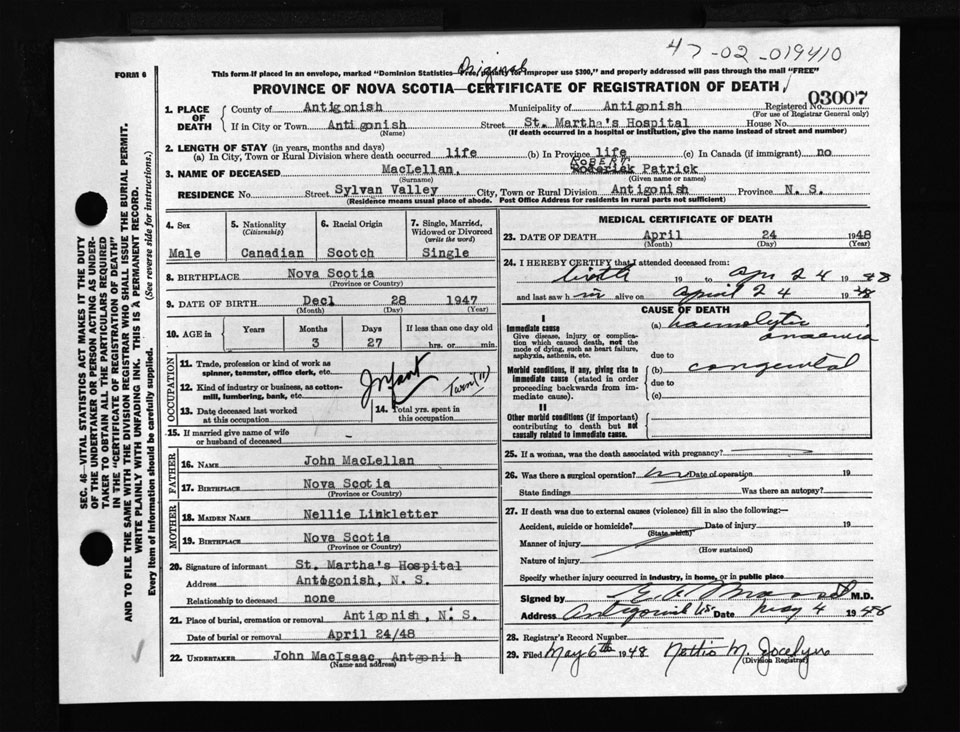 47-02-019410
Original
FORM 6
This form if placed in an envelope, marked "Dominion Statistics—Free, penalty for improper use $300," and properly addressed will pass through the mail "FREE"
PROVINCE OF NOVA SCOTIA—CERTIFICATE OF REGISTRATION OF DEATH
1. PLACE OF DEATH County of Antigonish Municipality of Antigonish Registered No. 03007
(For use of Registrar General only)
If in City or Town Antigonish Street St. Martha's Hospital House No.
(Name) (If death occurred in a hospital or institution, give the name instead of street and number)
2. LENGTH OF STAY (in years, months and days)
(a) In City, Town or Rural Division where death occurred life (b) In Province life (c) In Canada (if immigrant) no
ROBERT
3. NAME OF DECEASED MacLellan, Roderick Patrick
(Surname) (Given name or names)
RESIDENCE No. Street Sylvan Valley City, Town or Rural Division Antigonish Province N. S.
(Residence means usual place of abode. Post Office Address for residents in rural parts not sufficient)
4. Sex 5. Nationality (Citizenship) 6. Racial Origin 7. Single, Married, Widowed or Divorced (write the word)
Male Canadian Scotch Single
8. BIRTHPLACE Nova Scotia
(Province or Country)
9. DATE OF BIRTH Decl 28 1947
(Month) (Day) (Year)
10. AGE in Years Months Days If less than one day old
3 27 hrs. or min.
OCCUPATION
11. Trade, profession or kind of work as spinner, teamster, office clerk, etc.
12. Kind of industry or business, as cotton-mill, lumbering, bank, etc.
Infant Twin (11)
13. Date deceased last worked at this occupation 14. Total yrs. spent in this occupation
15. If married give name of wife or husband of deceased –
FATHER
16. NAME John MacLellan
17. BIRTHPLACE Nova Scotia
(Province or Country)
MOTHER
18. MAIDEN NAME Nellie Linkletter
19. BIRTHPLACE Nova Scotia
(Province or Country)
20. Signature of informant St. Martha's Hospital
Address Antogonish, N. S.
Relationship to deceased none
21. Place of burial, cremation or removal Antigonish, N. S.
Date of burial or removal April 24/48
22. UNDERTAKER John MacIsaac, Antgoni h
(Name and address)
MEDICAL CERTIFICATE OF DEATH
23. DATE OF DEATH April 24 1948
(Month) (Day) (Year)
24. I HEREBY CERTIFY that I attended deceased from:
birth 19 to Apr 24 1948
and last saw h im alive on April 24 1948
CAUSE OF DEATH
I
Immediate cause (a) haemolytic anaemia
Give disease, injury or complication which caused death, not the mode of dying, such as heart failure, asphyxia, asthenia, etc.
due to
Morbid conditions, if any, giving rise to immediate cause (stated in order proceeding backwards from immediate cause). (b) congenital
due to
(c)
II
Other morbid conditions (if important) contributing to death but not causally related to immediate cause.
25. If a woman, was the death associated with pregnancy?
26. Was there a surgical operation? no Date of operation 19
State findings Was there an autopsy?
27. If death was due to external causes (violence) fill in also the following:—
Accident, suicide or homicide? Date of injury 19
(State which)
Manner of injury
(How sustained)
Nature of injury
Specify whether injury occurred in industry, in home, or in public place
Signed by M.D.
Address Antigonish NS Date May 4 1948
28. Registrar's Record Number
29. Filed May 6th 1948 Nottie M. Jocelyn
(Division Registrar)
SEC. 46—VITAL STATISTICS ACT MAKES IT THE DUTY
OF THE UNDERTAKER OR PERSON ACTING AS UNDER-
TAKER TO OBTAIN ALL THE PARTICULARS REQUIRED
IN THE "CERTIFICATE OF REGISTRATION OF DEATH"
AND TO FILE THE SAME WITH THE DIVISION REGISTRAR WHO SHALL ISSUE THE BURIAL PERMIT.
WRITE PLAINLY WITH UNFADING INK. THIS IS A PERMANENT RECORD.
Every item of information should be carefully supplied. (See reverse side for instructions.)